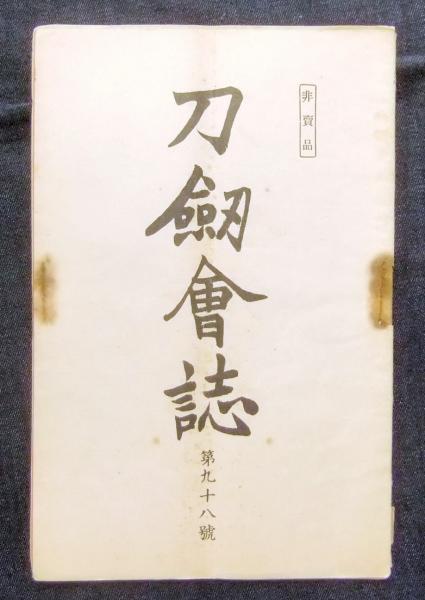 非賣品
刀劔會誌
第九十八號